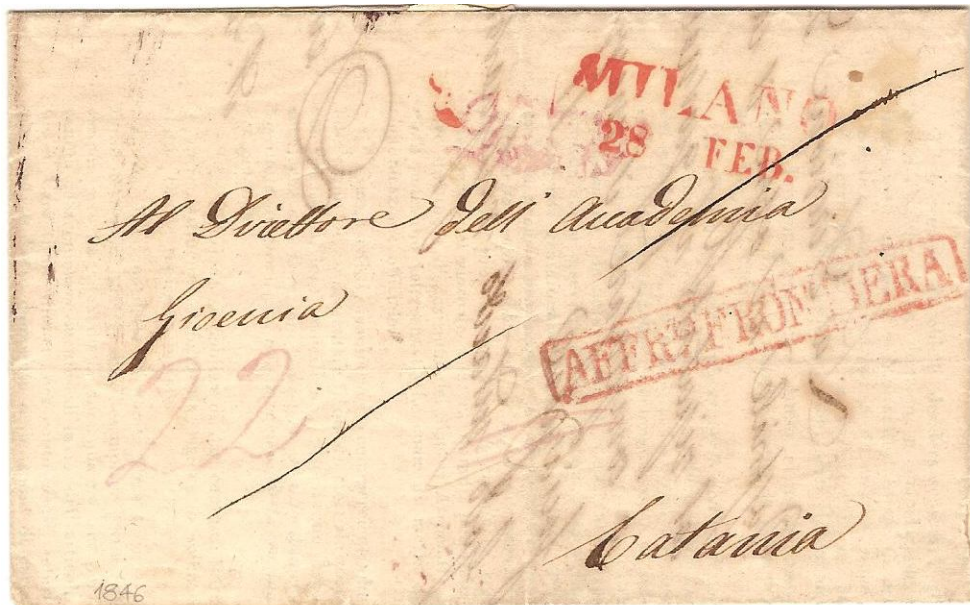 MILANO
28 FEB.
Al Direttore dell' Accademia
Gioenia
AFFR. FRONTIERA
22
Catania
1846